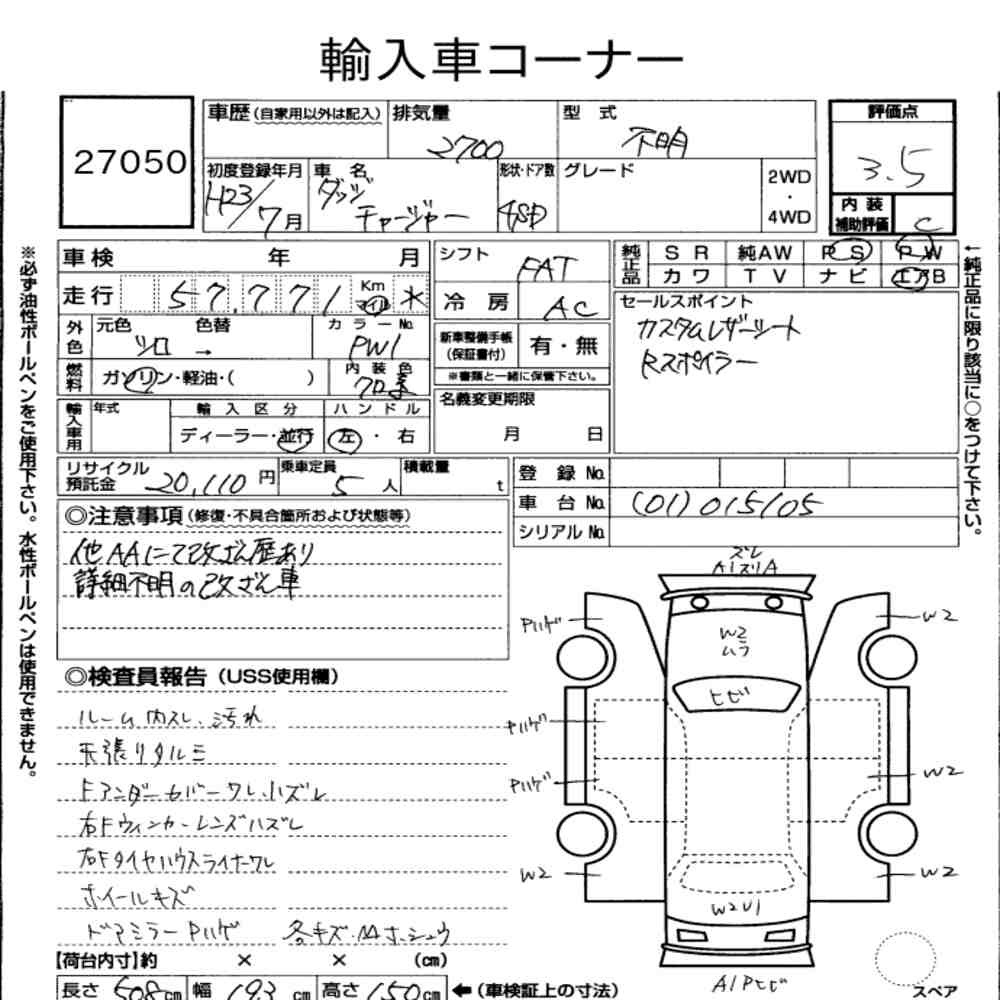 輸入車コーナー
27050
車歴(自家用以外は記入) 排気量 2700 型式 不明
評価点 3.5
初度登録年月 H23/7月 車名 ダッジ チャージャー 形状・ドア数 4SD グレード 2WD・4WD
内装補助評価 C
車検 年 月
シフト FAT
純正品 SR 純AW PS PW
カワ TV ナビ エアB
走行 57,771 Km マイル *
冷房 AC
セールスポイント
カスタムレザーシート
Rスポイラー
外色 元色 シロ → 色替 カラーNo. PW1
新車整備手帳(保証書付) 有・無
※書類と一緒に保管下さい。
燃料 ガソリン・軽油・( ) 内装色
名義変更期限 月 日
輸入車用 年式 輸入区分 ディーラー・並行 ハンドル 左・右
リサイクル預託金 20,110円 乗車定員 5人 積載量 t
登録No.
車台No. (01)015105
シリアルNo.
◎注意事項(修復・不具合箇所および状態等)
他AAにて改ざん歴あり
詳細不明の改ざん車
◎検査員報告(USS使用欄)
ルーム内スレ、汚れ
天張りタルミ
Fアンダーカバーワレ、ハズレ
右Fウィンカーレンズハズレ
右Fタイヤハウスライナーワレ
ホイールキズ
ドアミラーPハゲ 各キズ・AAホシュウ
【荷台内寸】約 × × (cm)
長さ 508cm 幅 193cm 高さ 150cm ←(車検証上の寸法)
ズレ
A1スリA
Pハゲ
W2
W2
ムラ
ヒビ
Pハゲ
Pハゲ
W2
W2
W2
W2U1
A1Pヒビ
スペア
※必ず油性ボールペンをご使用下さい。水性ボールペンは使用できません。
←純正品に限り該当に○をつけて下さい。